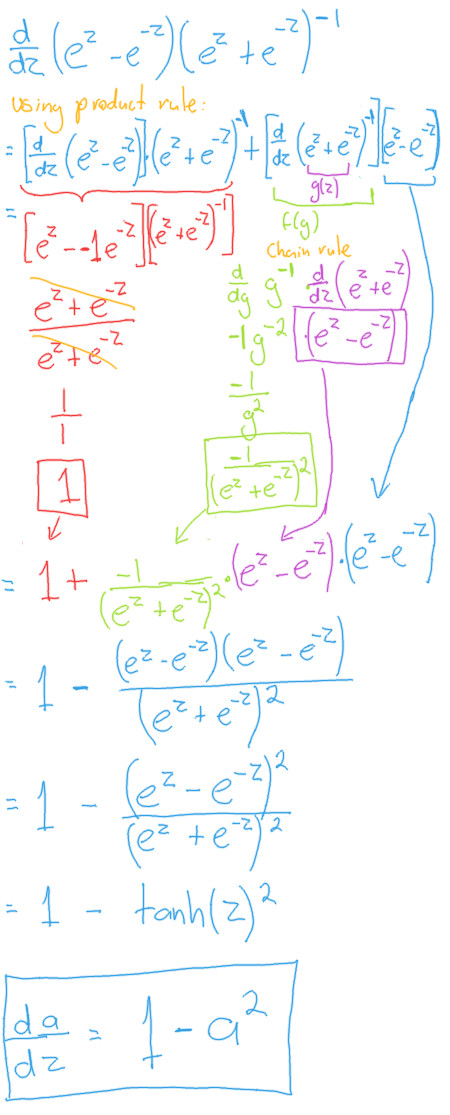 d/dz (e^z - e^-z)(e^z + e^-z)^-1
using product rule:
= [d/dz (e^z - e^-z)]·(e^z + e^-z)^-1 + [d/dz (e^z + e^-z)^-1][e^z - e^-z]
g(z)
f(g)
= [e^z - -1e^-z][(e^z + e^-z)^-1]
Chain rule
d/dg g^-1 d/dz (e^z + e^-z)
e^z + e^-z / e^z + e^-z
-1g^-2 ·(e^z - e^-z)
1/1
-1/g^2
1
-1/(e^z + e^-z)^2
= 1 + -1/(e^z + e^-z)^2 · (e^z - e^-z) · (e^z - e^-z)
= 1 - (e^z - e^-z)(e^z - e^-z)/(e^z + e^-z)^2
= 1 - (e^z - e^-z)^2/(e^z + e^-z)^2
= 1 - tanh(z)^2
da/dz = 1 - a^2